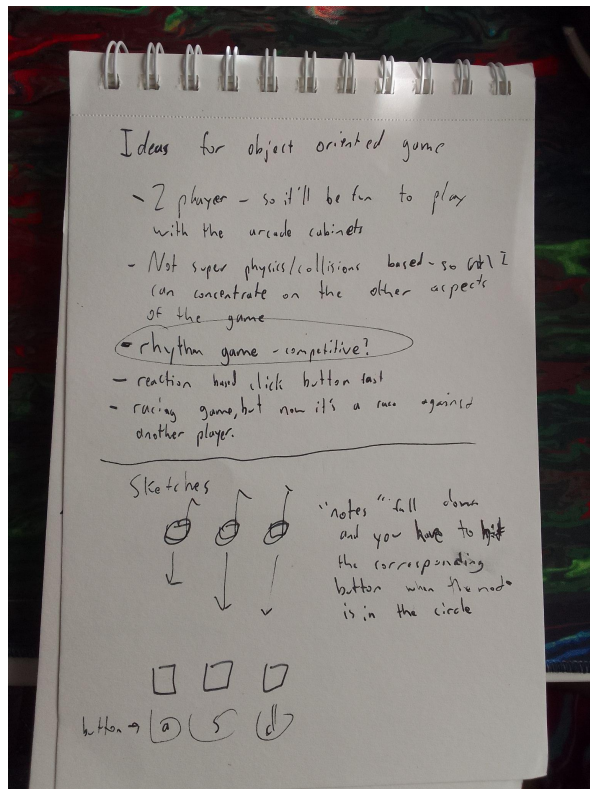 Ideas for object oriented game
- 2 player - so it'll be fun to play
with the arcade cabinets
- Not super physics/collisions based - so I
can concentrate on the other aspects
of the game
- rhythm game - competitive?
- reaction based click button fast
- racing game, but now it's a race against
another player.
Sketches
"notes" fall down
and you have to hit
the corresponding
button when the node
is in the circle
button → a s d